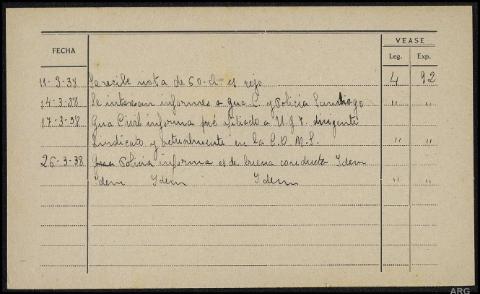 VEASE
FECHA Leg. Exp.
11-3-38 Se recibe nota de 60-d- es rojo 4 92
14-3-38 Se interesan informes a Gua C. y Policia Santiago " "
17-3-38 Gua Civil informa fué afiliado a U.G.T. dirigente
Sindicato y actualmente en la C.O.N.S. " "
26-3-38 Policia informa es de buena conducta Idem
Idem Idem Idem " "
ARG